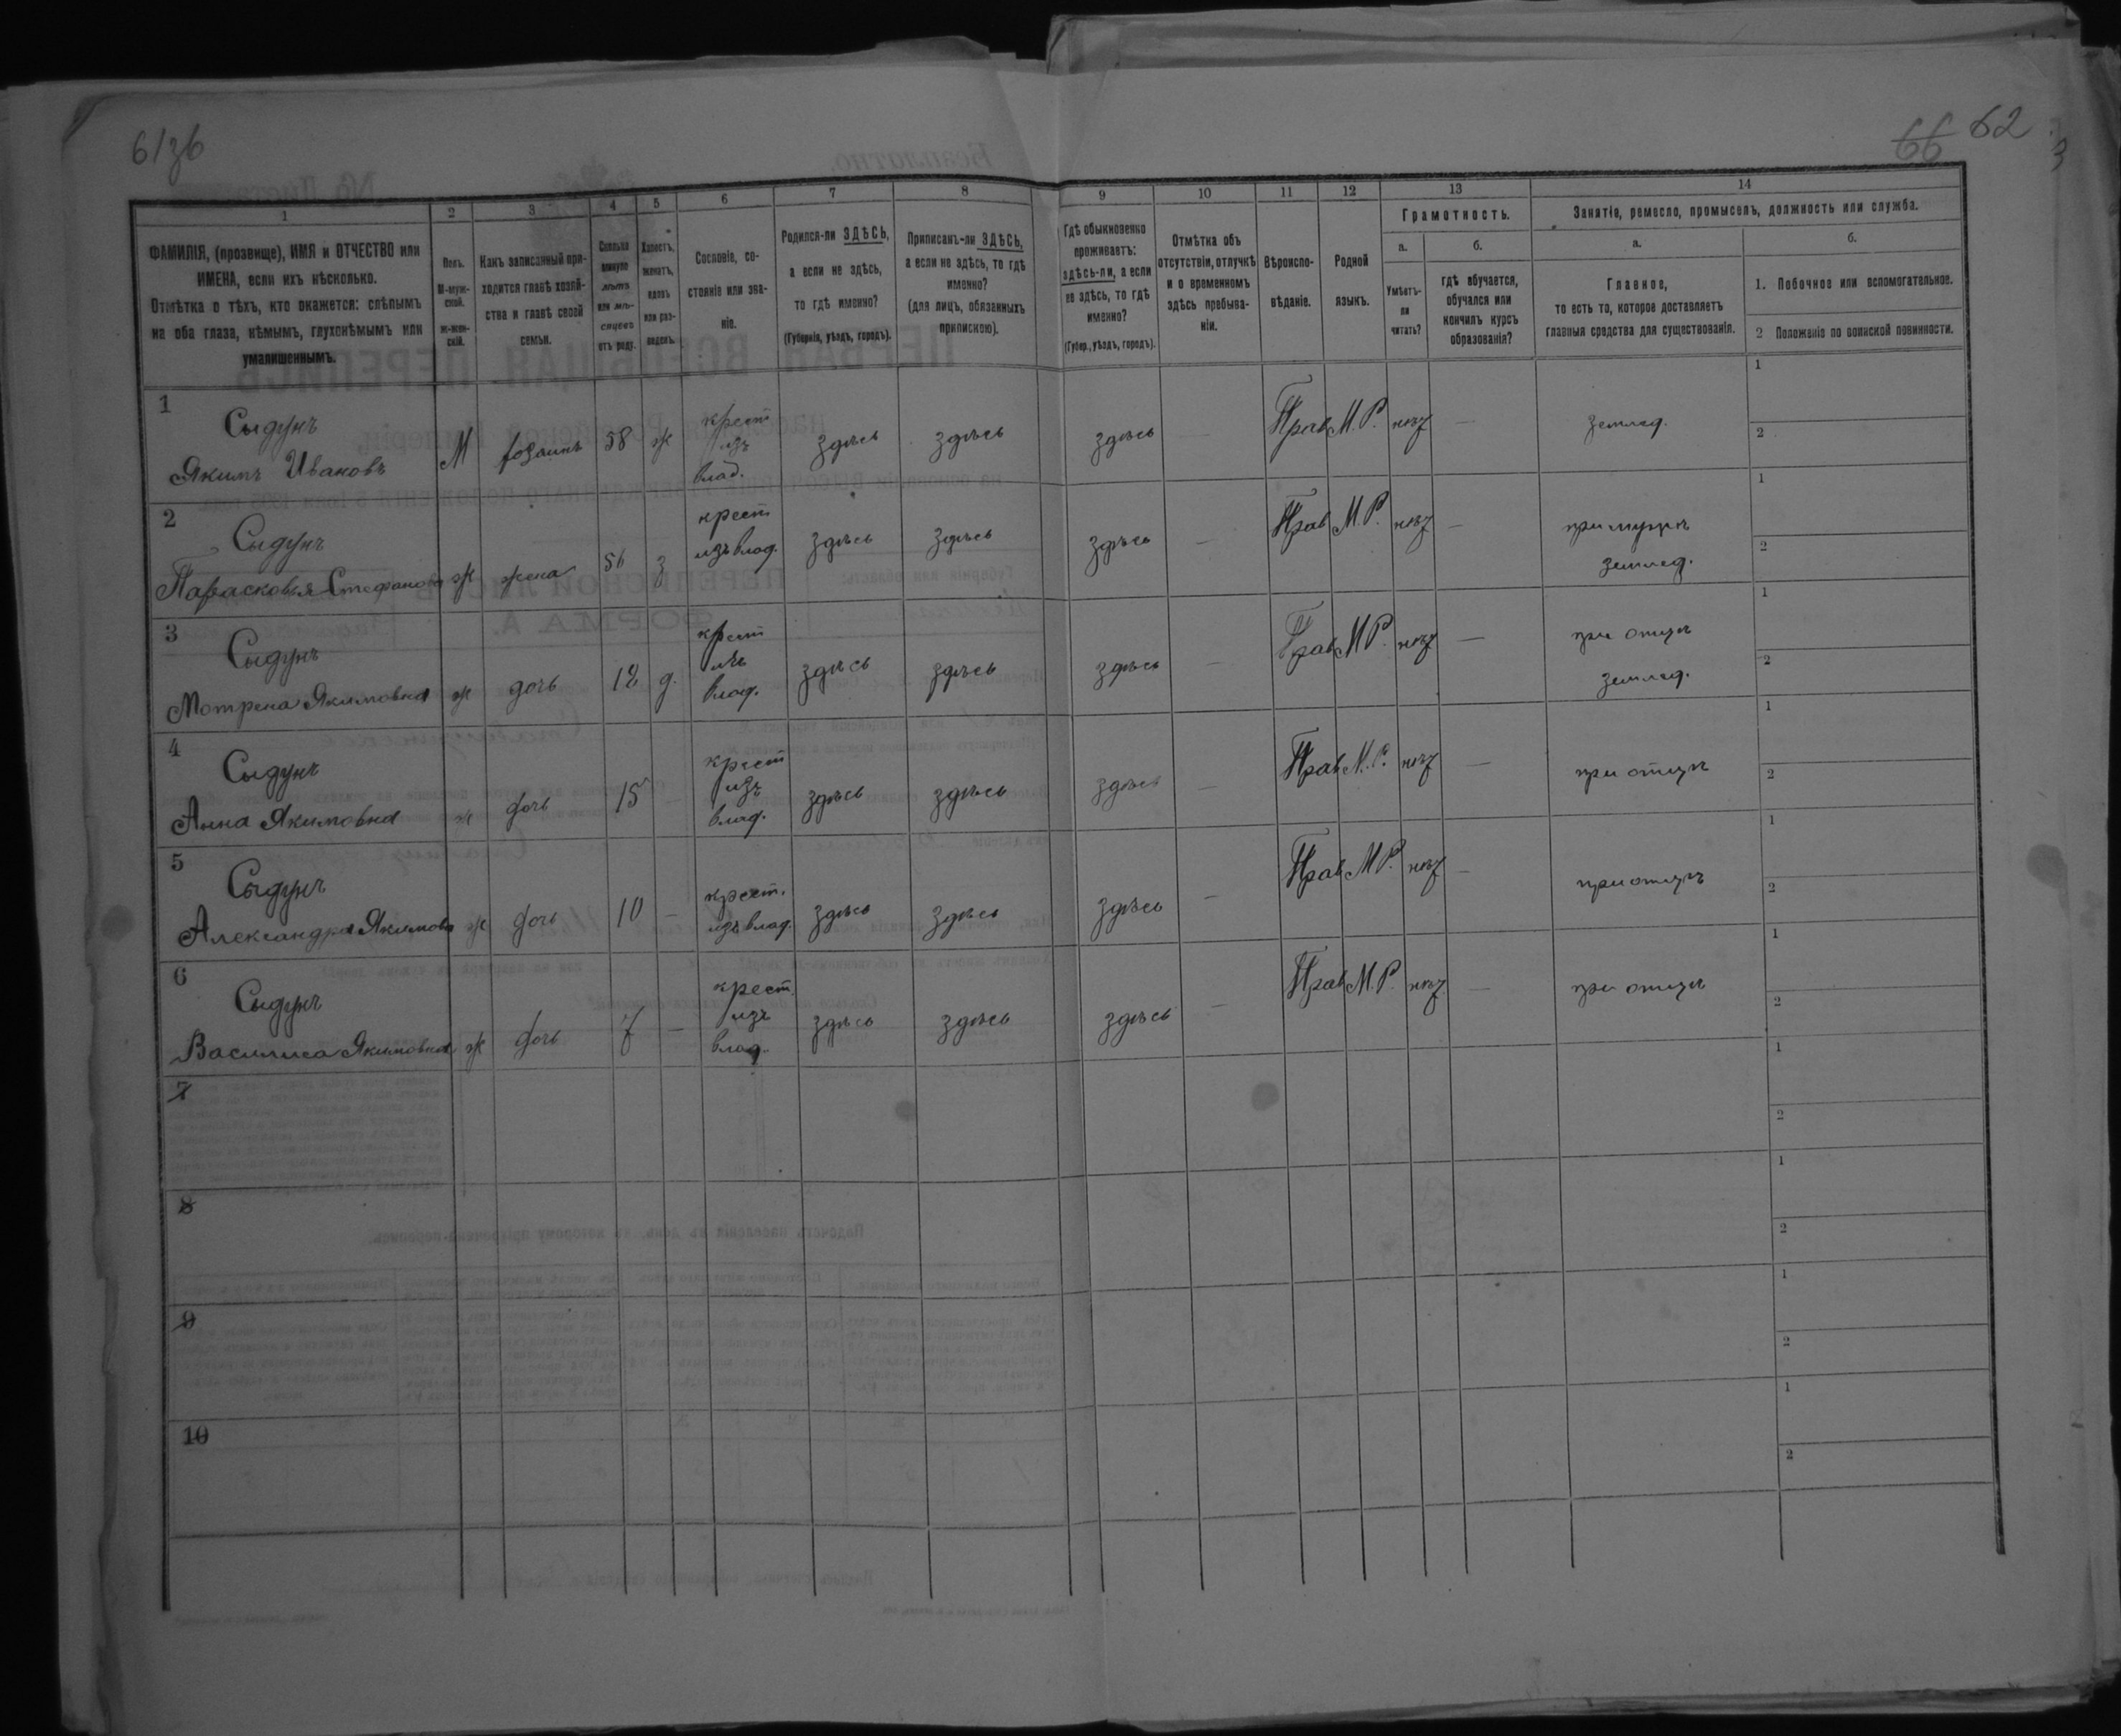 61зб
66 62
1 2 3 4 5 6 7 8 9 10 11 12 13 14
ФАМИЛІЯ, (прозвище), ИМЯ и ОТЧЕСТВО или
ИМЕНА, если ихъ нѣсколько.
Отмѣтка о тѣхъ, кто окажется: слѣпымъ
на оба глаза, нѣмымъ, глухонѣмымъ или
умалишеннымъ.
Полъ.
М-муж-
ской.
ж-жен-
скій.
Какъ записанный при-
ходится главѣ хозяй-
ства и главѣ своей
семьи.
Сколько
минуло
лѣтъ
или мѣ-
сяцевъ
отъ роду.
Холостъ,
женатъ,
вдовъ
или раз-
веденъ.
Сословіе, со-
стояніе или зва-
ніе.
Родился-ли ЗДѢСЬ,
а если не здѣсь,
то гдѣ именно?
(Губернія, уѣздъ, городъ).
Приписанъ-ли ЗДѢСЬ,
а если не здѣсь, то гдѣ
именно?
(для лицъ, обязанныхъ
припискою).
Гдѣ обыкновенно
проживаетъ:
здѣсь-ли, а если
не здѣсь, то гдѣ
именно?
(Губер., уѣздъ, городъ).
Отмѣтка объ
отсутствіи, отлучкѣ
и о временномъ
здѣсь пребыва-
ніи.
Вѣроиспо-
вѣданіе.
Родной
языкъ.
Грамотность.
а.
Умѣетъ-
ли
читать?
б.
гдѣ обучается,
обучался или
кончилъ курсъ
образованія?
Занятіе, ремесло, промыселъ, должность или служба.
а.
Главное,
то есть то, которое доставляетъ
главныя средства для существованія.
б.
1. Побочное или вспомогательное.
2 Положеніе по воинской повинности.
1
Сыдунъ
Якимъ Ивановъ
М
хозаинъ
58
ж
крест
изъ
влад.
здѣсь
здѣсь
здѣсь
—
Прав
М. Р.
нѣт
—
землед.
1
2
2
Сыдунъ
Парасковья Стефанова
ж
жена
56
з
крест
изъ влад.
здѣсь
здѣсь
здѣсь
—
Прав
М. Р.
нѣт
—
при мужѣ
землед.
1
2
3
Сыдунъ
Мотрена Якимовна
ж
дочь
18
д.
крест
изъ
влад.
здѣсь
здѣсь
здѣсь
—
Прав
М Р.
нѣт
—
при отцѣ
землед.
1
2
4
Сыдунъ
Анна Якимовна
ж
дочь
15
—
крест
изъ
влад.
здѣсь
здѣсь
здѣсь
—
Прав
М. Р.
нѣт
—
при отцѣ
1
2
5
Сыдунъ
Александра Якимова
ж
дочь
10
—
крест.
изъ влад.
здѣсь
здѣсь
здѣсь
—
Прав
М Р.
нѣт
—
при отцѣ
1
2
6
Сыдунъ
Василиса Якимовна
ж
дочь
7
—
крест.
изъ
влад.
здѣсь
здѣсь
здѣсь
—
Прав
М. Р.
нѣт
—
при отцѣ
1
2
7
1
2
8
1
2
9
1
2
10
1
2